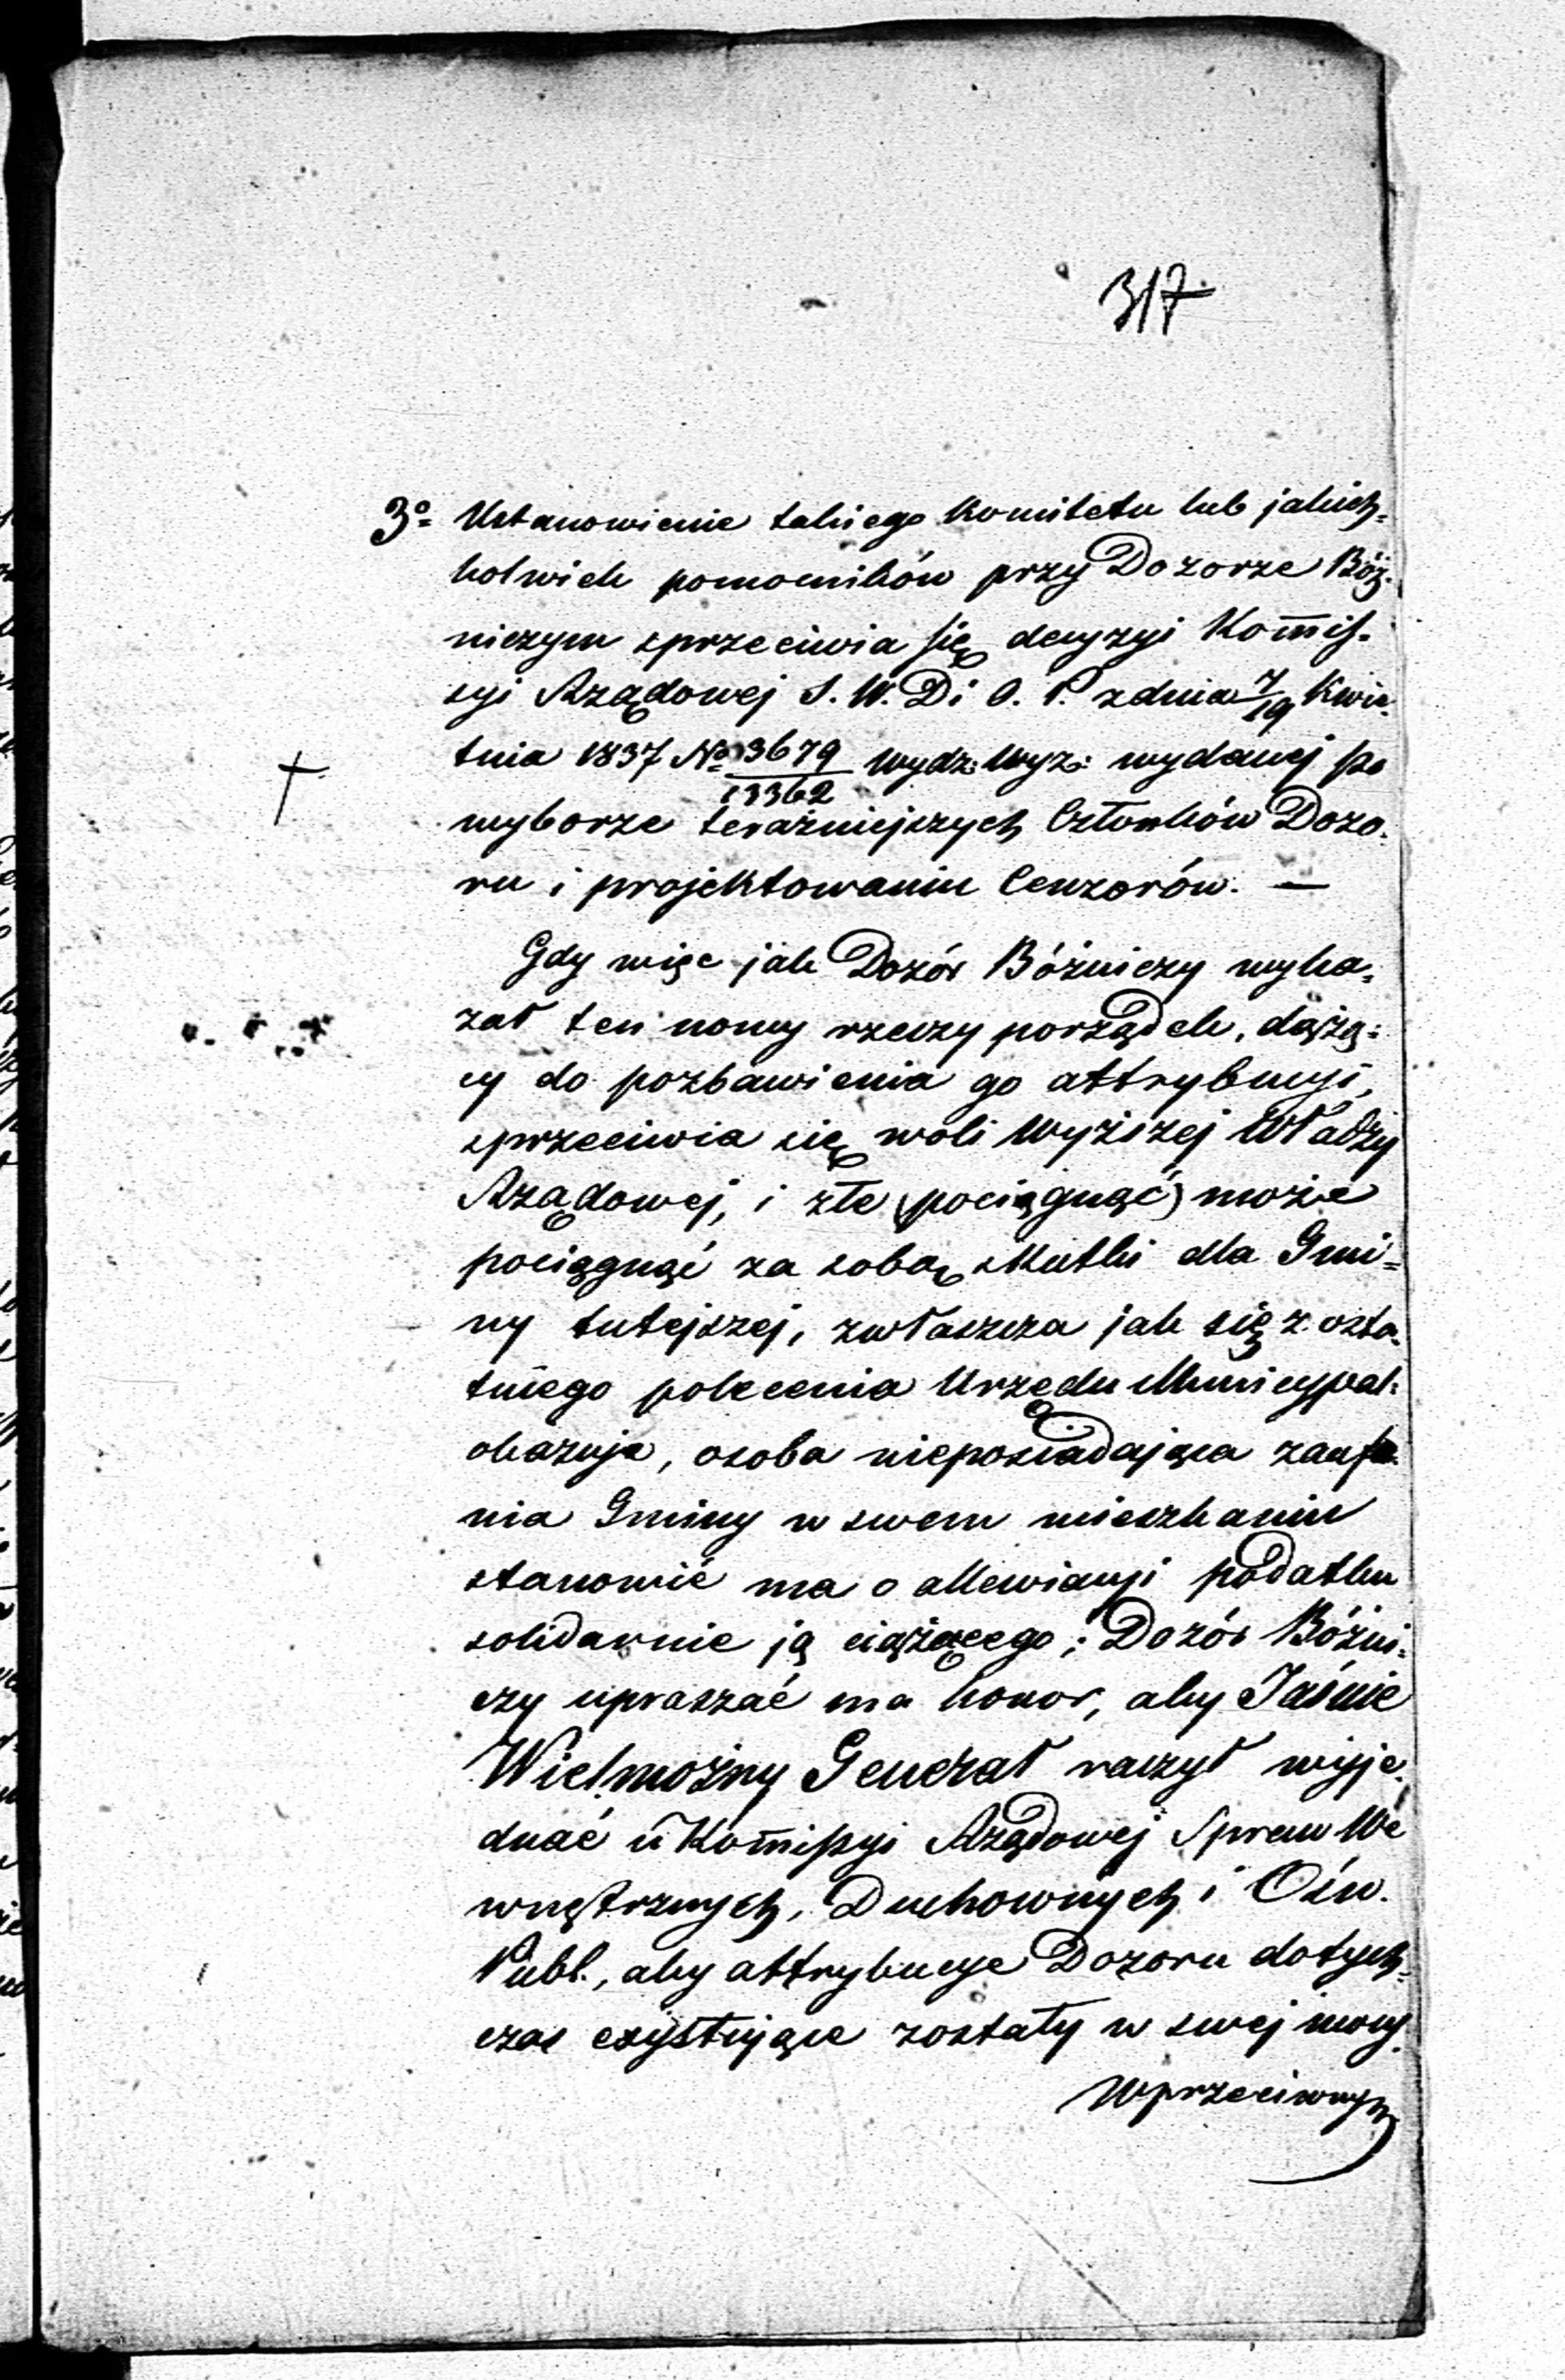 317
3o= Ustanowienie takiego Komitetu lub jakich=
kolwiek pomocników przy Dozorze Bóż=
niczym sprzeciwia się decyzyi Kom̄is=
syi Rządowej S. W. D. i O. P. z dnia 7/19 Kwie=
tnia 1837 No 3679/13362 Wydz: Wyz: wydanej po
wyborze teraźniejszych Członków Dozo=
ru i projektowaniu Cenzorów. —
Gdy więc jak Dozór Bóżniczy wyka=
zał ten nowy rzeczy porządek, dążą=
cy do pozbawienia go attrybucyi,
sprzeciwia się woli Wyższej Władzy
Rządowej, i złe (pociągnąć) może
pociągnąć za sobą skutki dla Gmi=
ny tutejszej, zwłaszcza jak się z osta=
tniego polecenia Urzędu Municypal:
okazuje, osoba nieposiadająca zaufa=
nia Gminy w swem mieszkaniu
stanowić ma o allewiacyi podatku
solidarnie ją ciążącego; Dozór Bóżni=
czy upraszać ma honor, aby Jaśnie
Wielmożny Generał raczył wyje=
dnać u Kom̄issyi Rządowej Spraw We
wnętrznych, Duchownych i Ośw.
Publ., aby attrybucye Dozoru dotych=
czas exystujące zostały w swej mocy.
W przeciwnym